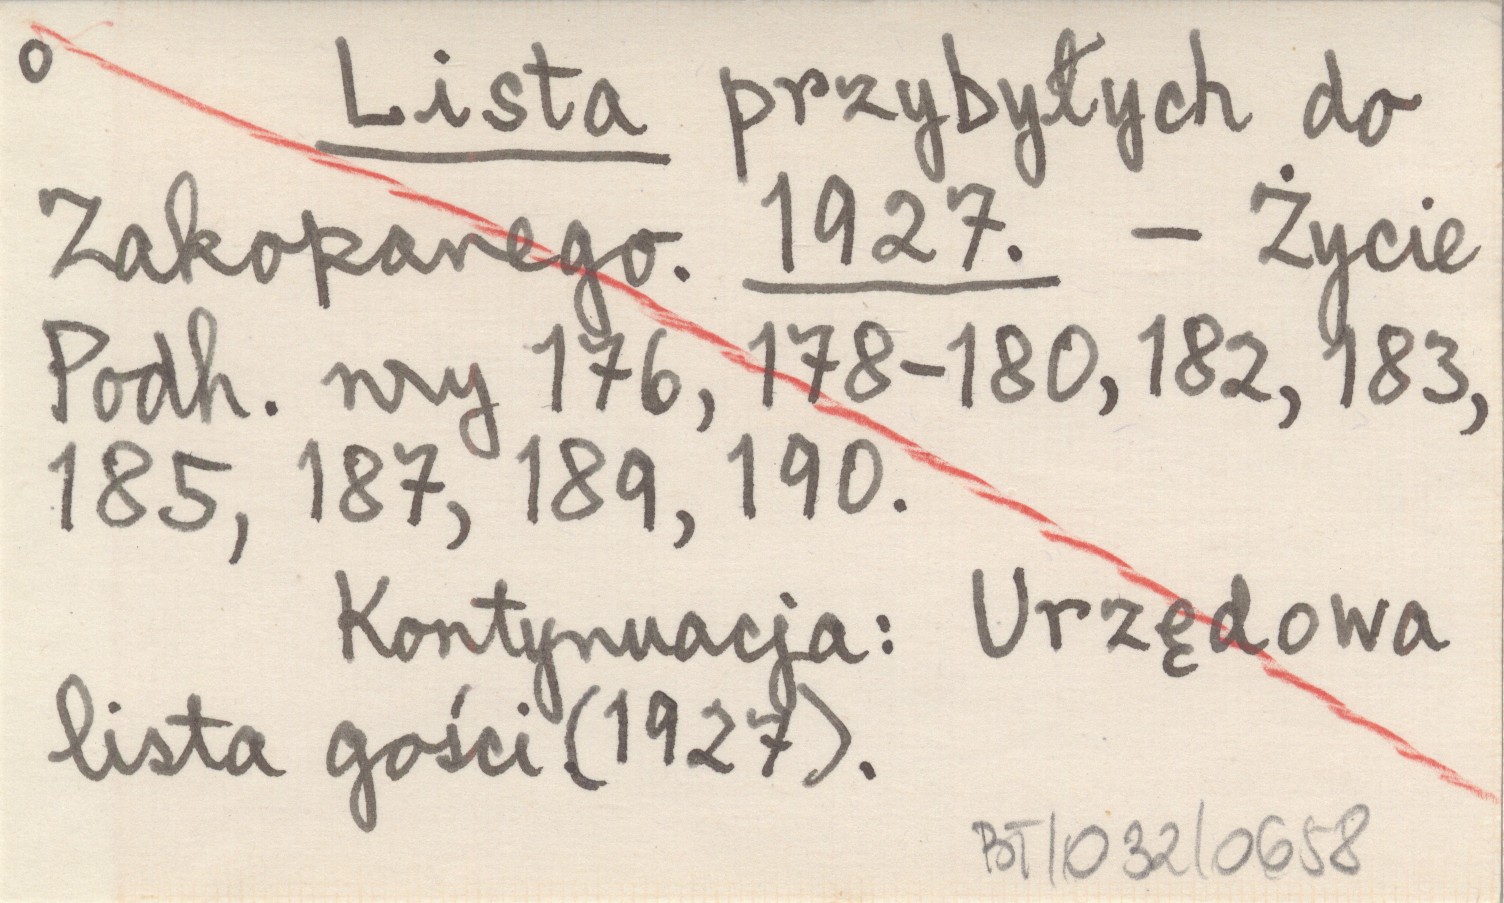 o Lista przybyłych do
Zakopanego. 1927. – Życie
Podh. nry 176, 178-180, 182, 183,
185, 187, 189, 190.
Kontynuacja: Urzędowa
lista gości (1927).
BT/032/0658